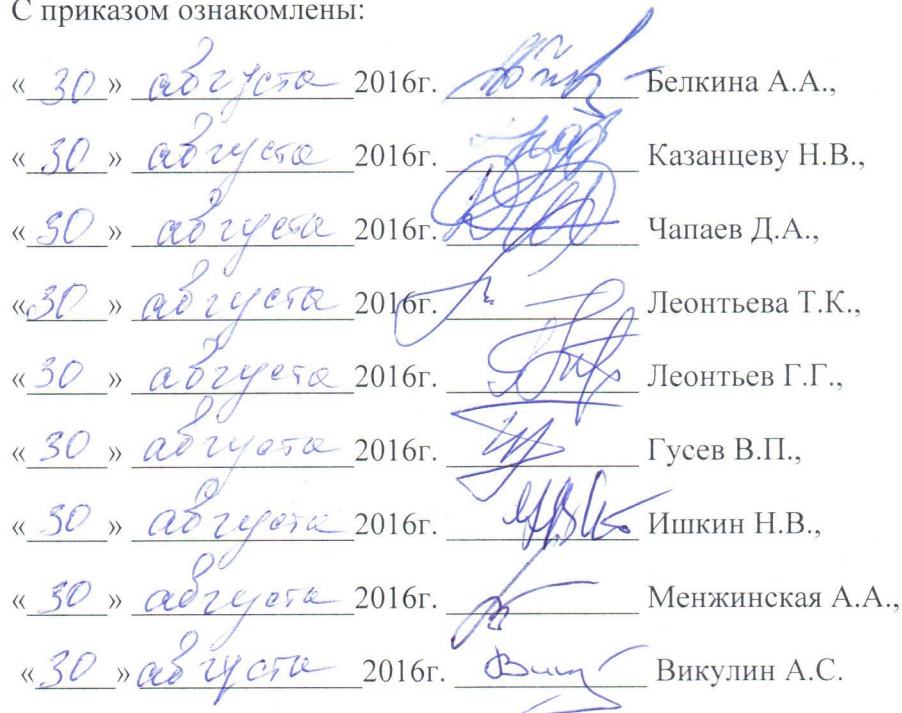 С приказом ознакомлены:
« 30 » августа 2016г. Белкина А.А.,
« 30 » августа 2016г. Казанцеву Н.В.,
« 30 » августа 2016г. Чапаев Д.А.,
« 30 » августа 2016г. Леонтьева Т.К.,
« 30 » августа 2016г. Леонтьев Г.Г.,
« 30 » августа 2016г. Гусев В.П.,
« 30 » августа 2016г. Ишкин Н.В.,
« 30 » августа 2016г. Менжинская А.А.,
« 30 » августа 2016г. Викулин А.С.